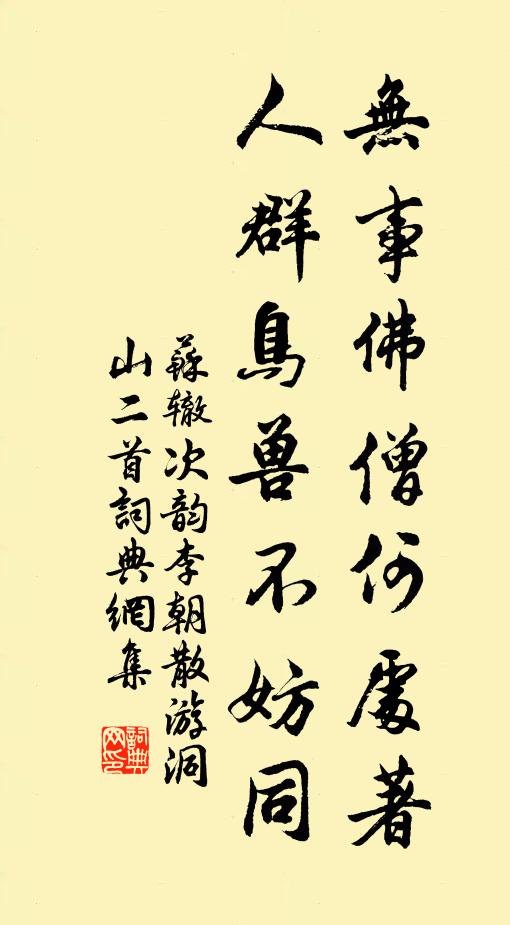 無事佛僧何處著
人群鳥兽不妨同
蘇辙次韵李朝散游洞
山二首詞典網集
詞典
网印